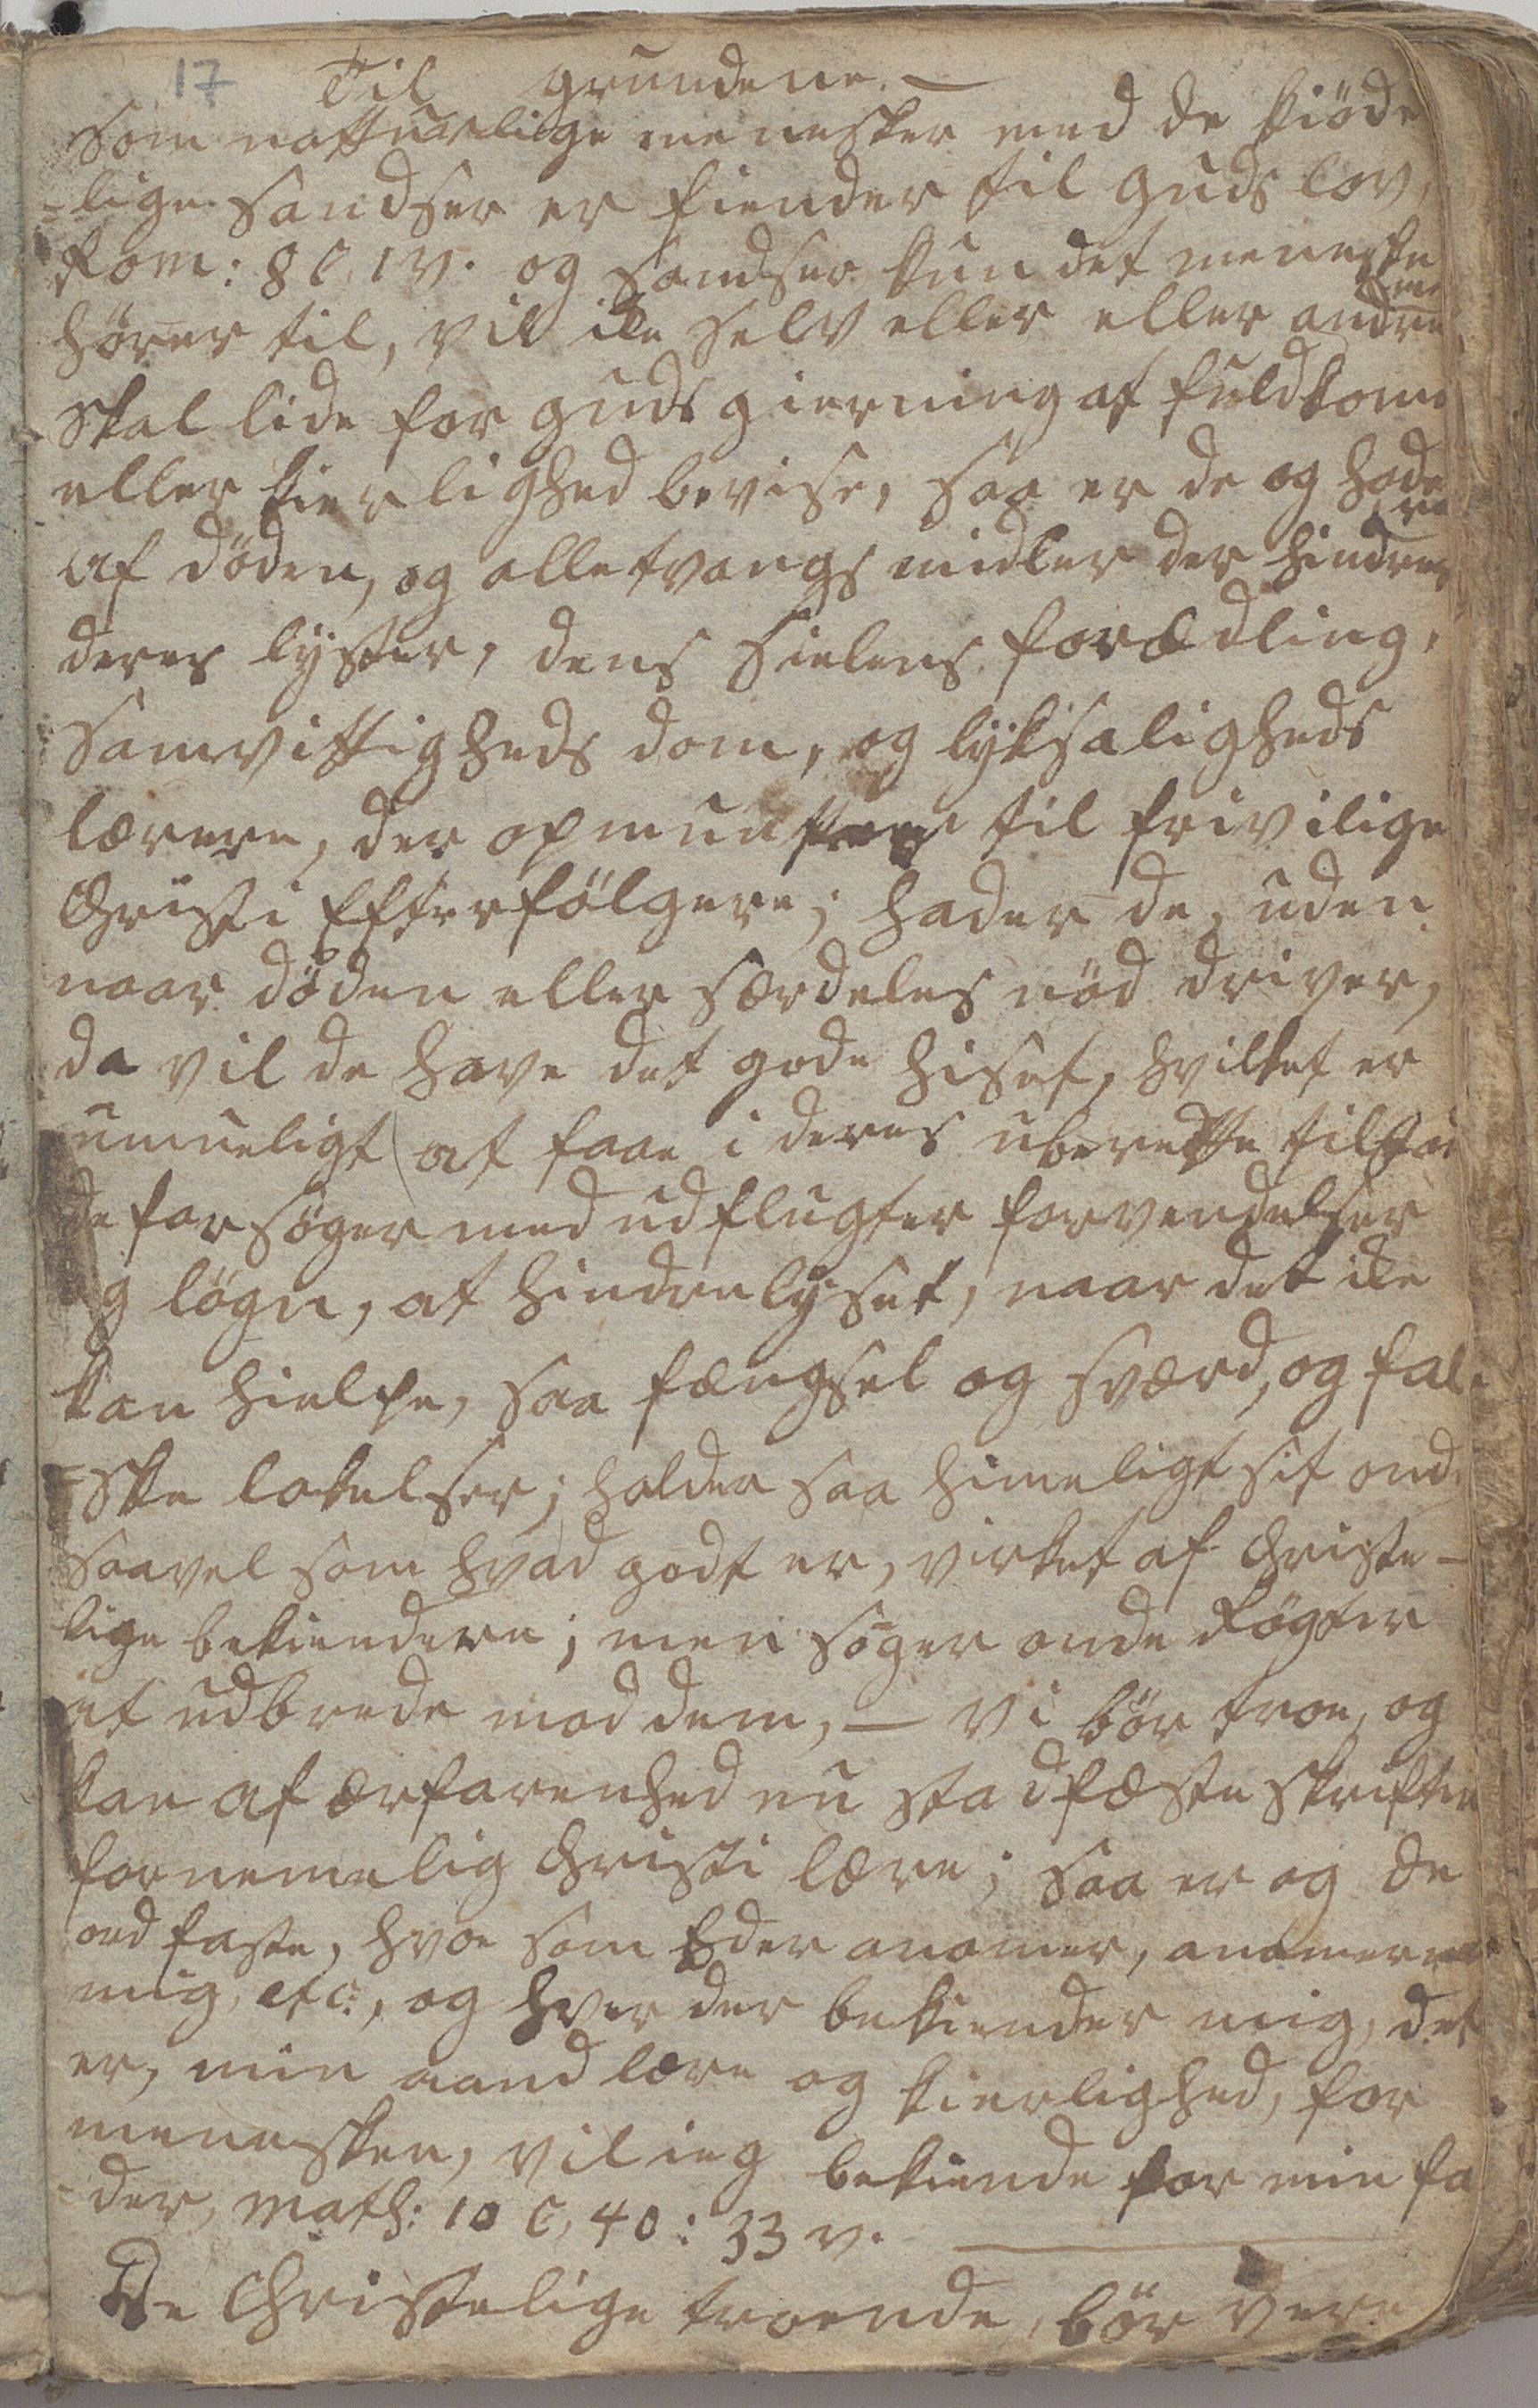 17 Til grundene. —
Som natturlige menesker med de kiöde
-lige sandser er fiender til Guds lov,
Rom: 8 C. 1 v. og sandser kun det meneske
hører til, vil ike selv eller eller andre
skal lide for Guds gierning at fuldkome
eller kierlighed bevise, saa er de og hade
af döden, og alle tvangs midler der hindrer
deres lyster, dens Sielens forædling,
Samvittigheds dom, og lyksaligheds
lærere, der opmuntrer til frivilige
Christi Efterfölgere; hader de, uden
naar döden eller særdeles nöd driver,
da vil de have det gode hiset, hvilket er
umueligt at faae i deres uberedte
de forsöger med udflugter forvendelser
g lögn, at hindre lyset, naar det ike
kan hielpe, saa fængsel og sværd, og fal-
=ske lokelser; holder saa himeligt sit onde
saavel som hvad godt er, virket af Christe-
lige bekiendere; men söger onde Rögter
at udbrede mod dem, — vi bör troe, og
kan af ærfarenhed nu stadfæste skriften
fornemelig Christi lære; saa er og de
ord faste, hvo som Eder anamer, anamerer
mig, etc:, og hver der bekiender mig, det
er, min aand lære og kierlighed, for
menesken, vil ieg bekiende for min fa
-der, Math: 10 C, 40: 33 v.
De Christelige troende, bör være